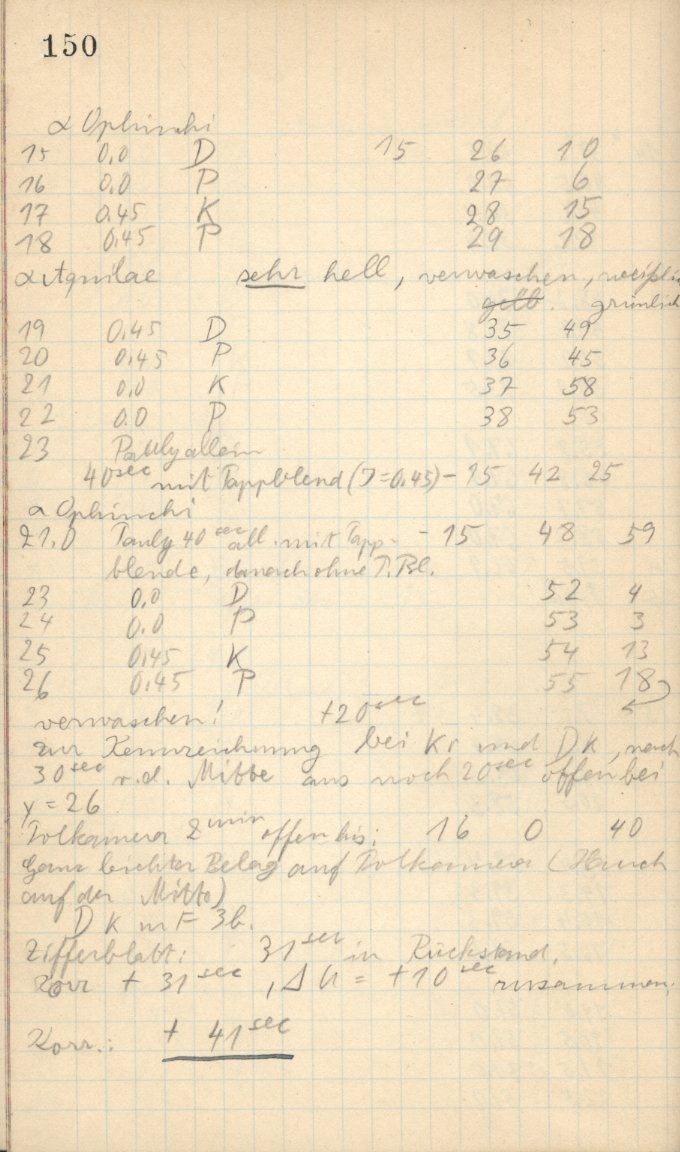 150
α Ophiuchi
15 0,0 D 15 26 10
16 0,0 P 27 6
17 0,45 K 28 15
18 0,45 P 29 18
α Aquilae sehr hell, verwaschen, weißlich
gelb grünlich
19 0,45 D 35 49
20 0,45 P 36 45
21 0,0 K 37 58
22 0,0 P 38 53
23 Pauly allein
40sec mit Tappblend (J=0,45) - 15 42 25
α Ophiuchi
21,0 Pauly 40sec all. mit Tapp- - 15 48 59
blende, danach ohne T. Bl.
23 0,0 D 52 4
24 0,0 P 53 3
25 0,45 K 54 13
26 0,45 P 55 18
verwaschen! +20sec
zur Kennzeichnung bei Kr und DK, nach
30sec v.d. Mitte aus noch 20sec offen bei
y = 26
Polkamera 2min offen bis: 16 0 40
Ganz leichter Belag auf Polkamera (Hauch
auf der Mitte)
DK m F 3b.
Zifferblatt: 31sec in Rückstand.
Korr + 31sec, ΔU = +10sec zusammen.
Korr.: + 41sec